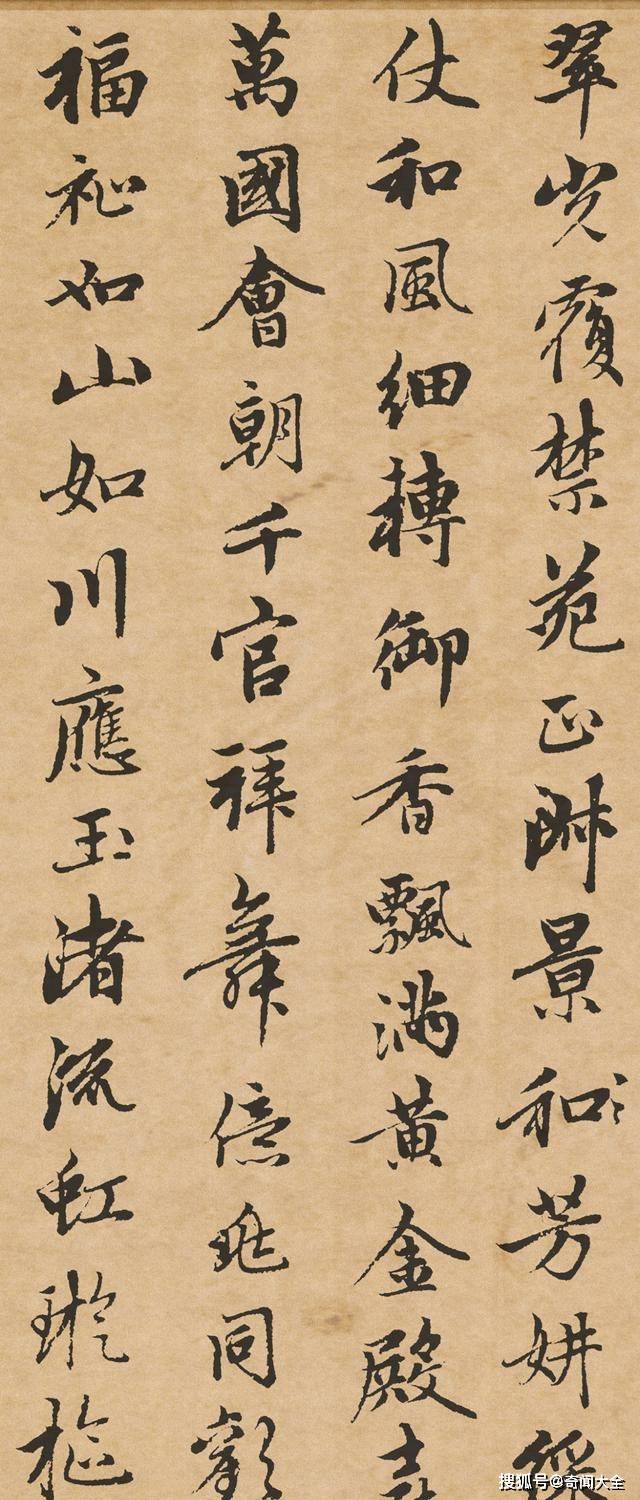 翠光覆禁苑正景和芳妍綵
仗和風細轉御香飄滿黃金殿喜
萬國會朝千官拜舞億兆同歡
福祉如山如川應玉渚流虹璇樞
搜狐号@奇闻大全